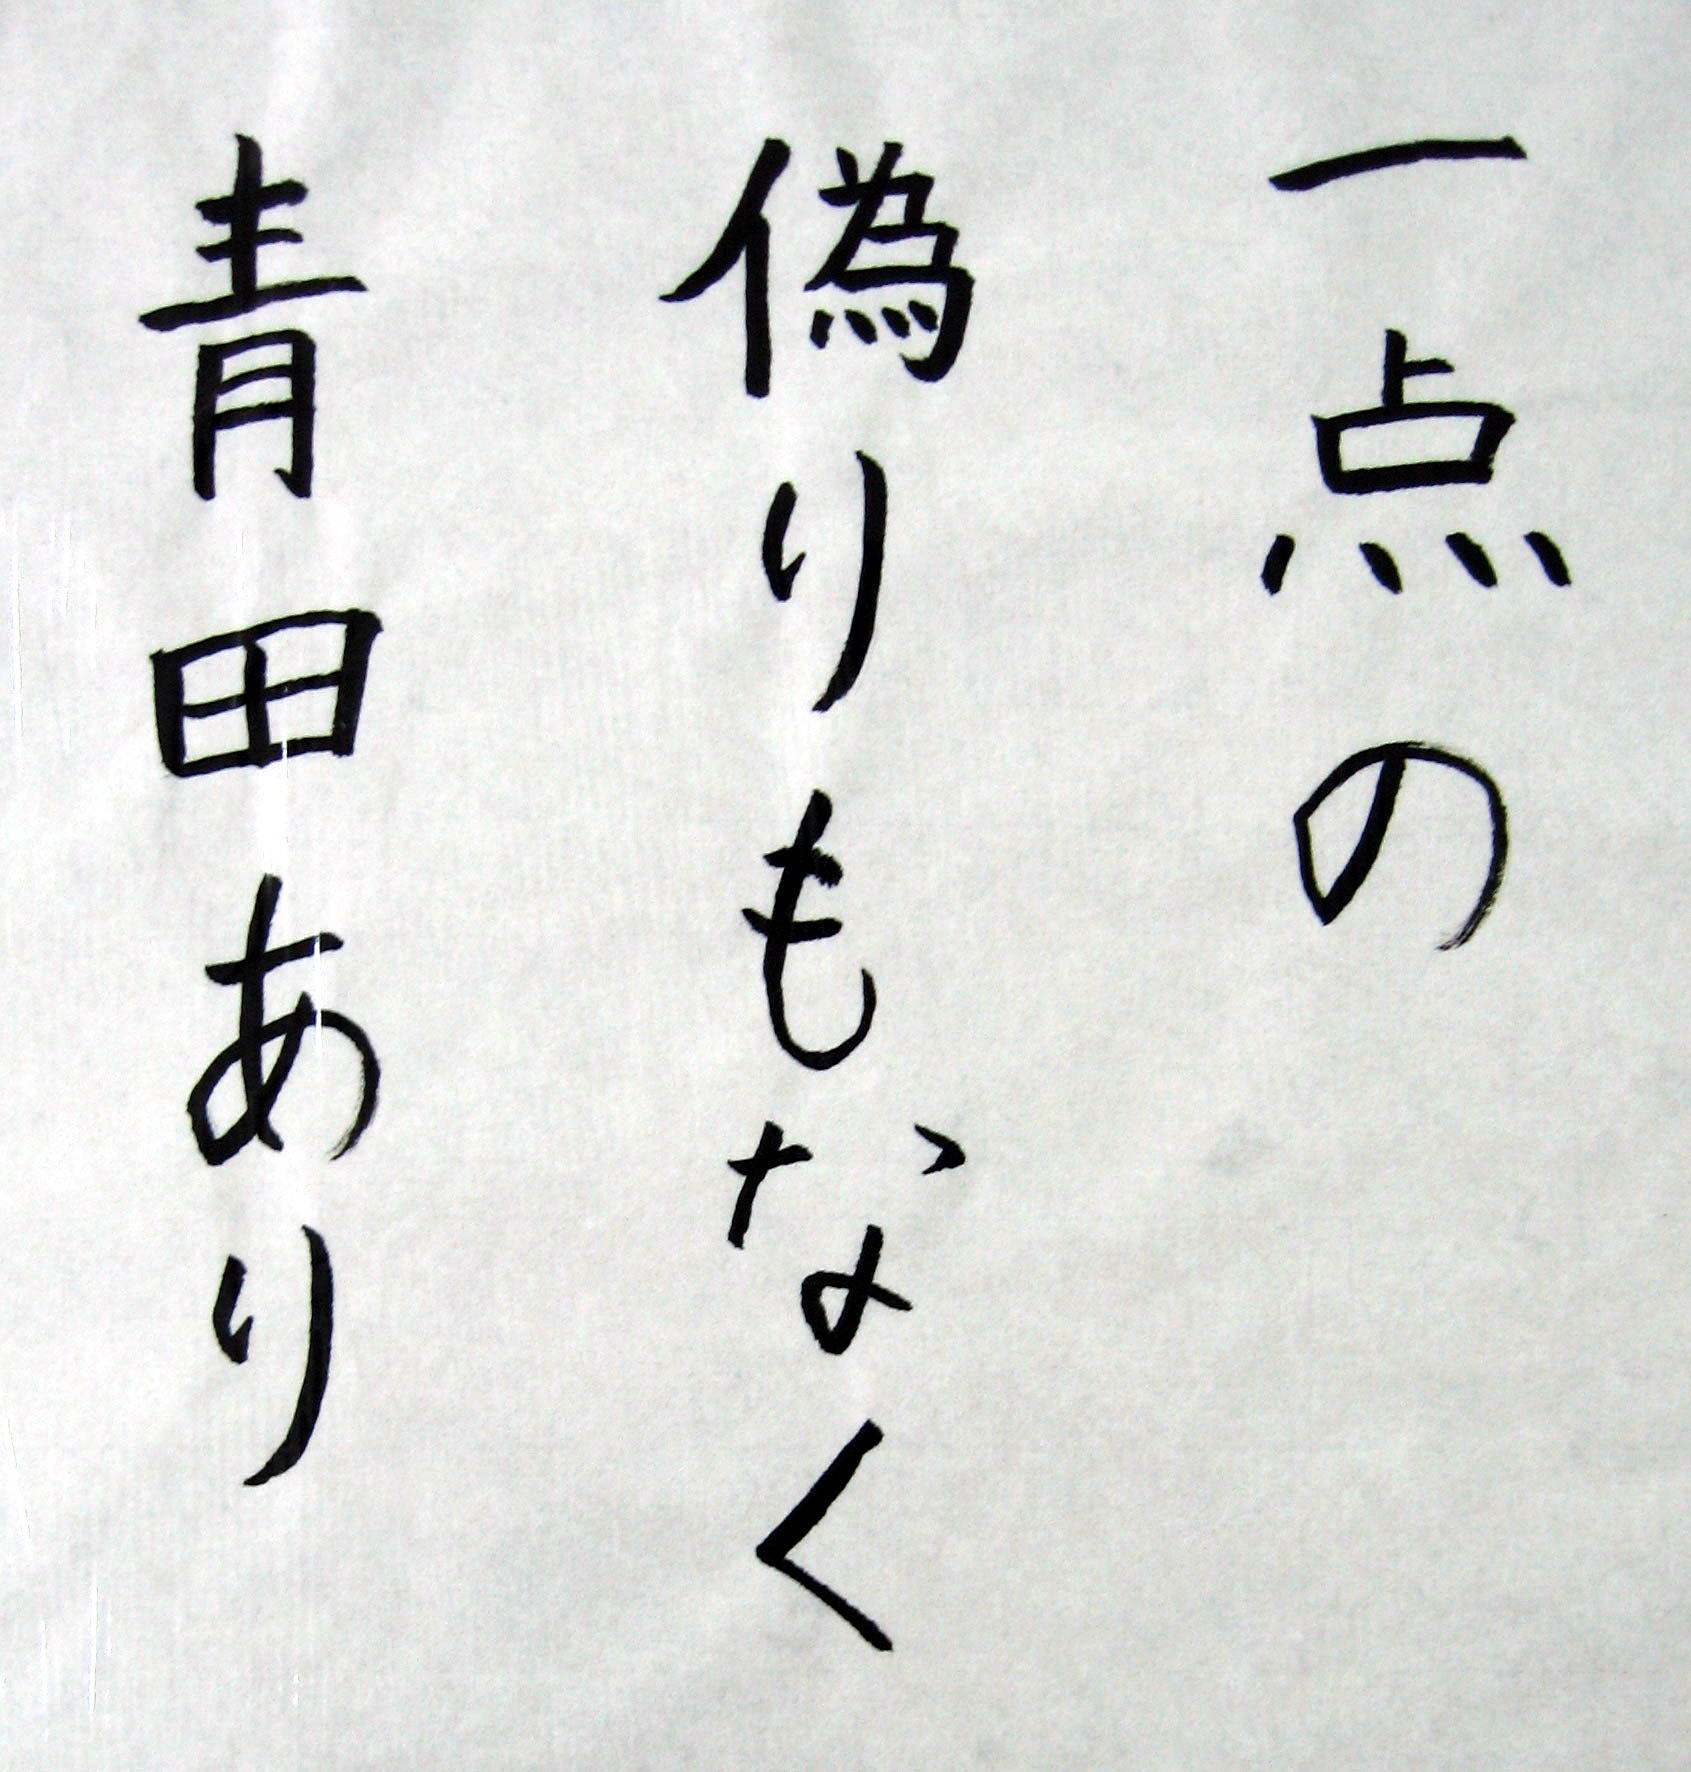 一点の
偽りもなく
青田あり